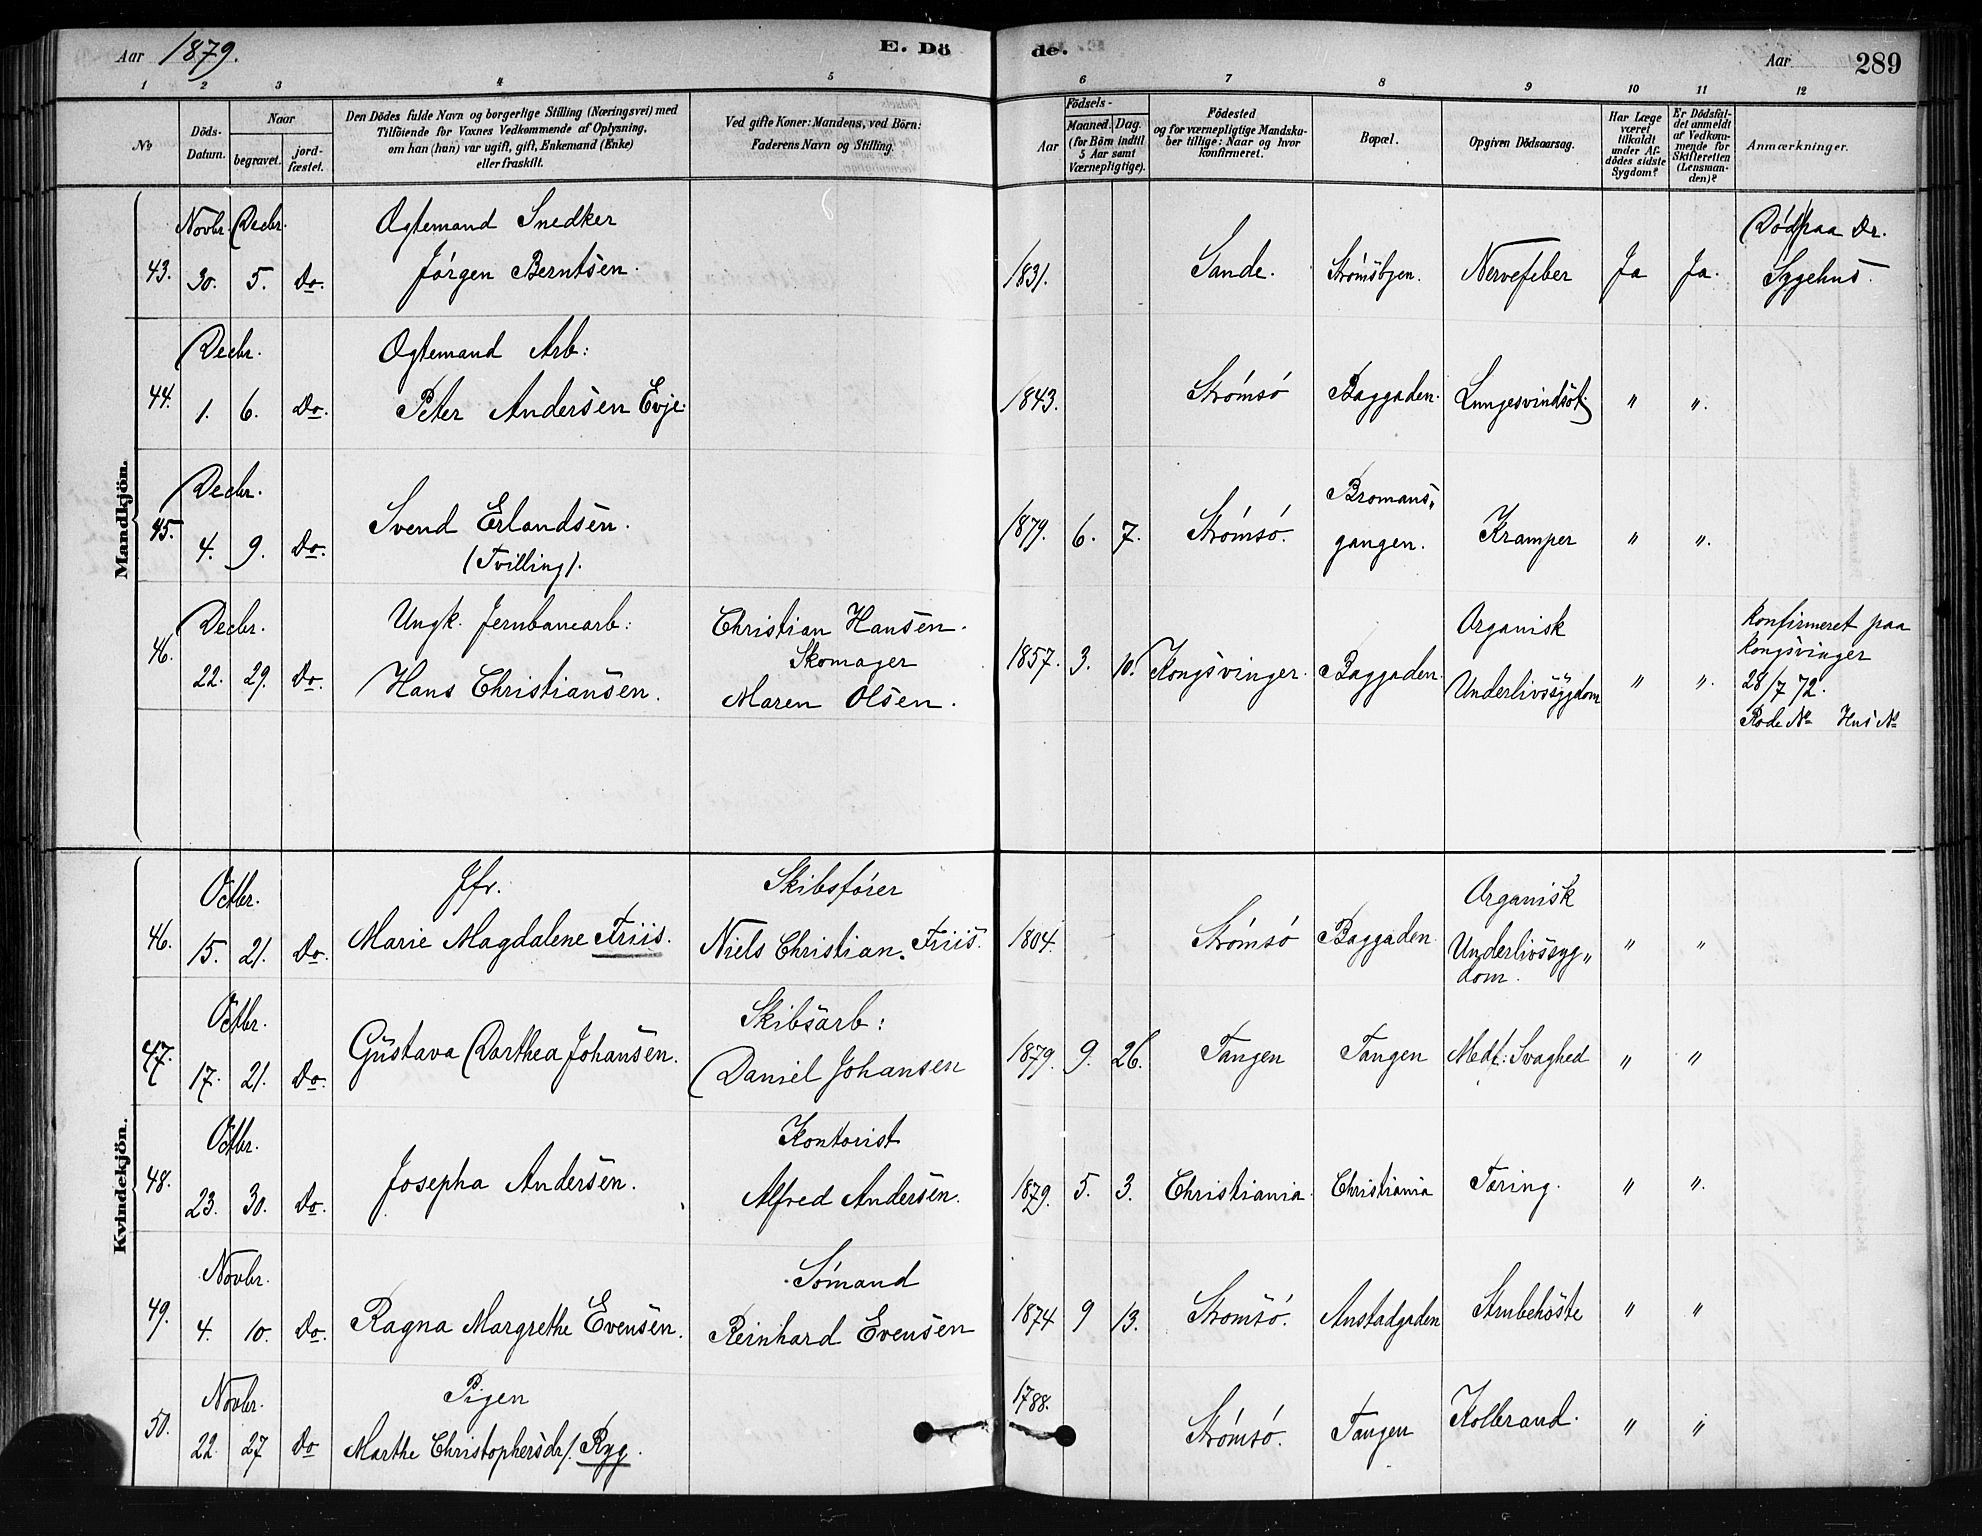 Aar 1879.
E. Dö
de.
Aar
289
1 2 3 4 5 6 7 8 9 10 11 12
No
Döds-
Datum.
Naar
begravet.
jord-
fæstet.
Den Dödes fulde Navn og borgerlige Stilling (Næringsvei) med
Tilföiende for Voxnes Vedkommende af Oplysning,
om han (hun) var ugift, gift, Enkemand (Enke)
eller fraskilt.
Ved gifte Koner: Mandens, ved Börn:
Faderens Navn og Stilling.
Födsels-
Aar
Maaned.
Dag.
(for Börn indtil
5 Aar samt
Værnepligtige).
Födested
og for værnepligtige Mandska-
ber tillige: Naar og hvor
konfirmeret.
Bopæl.
Opgiven Dödsaarsag.
Har Læge
været
tilkaldt
under Af-
dödes sidste
Sygdom?
Er Dödsfal-
det anmeldt
af Vedkom-
mende for
Skifteretten
(Lensman-
den)?
Anmærkninger.
Mandkjön.
Novbr. Decbr. Ogtemand Snedker Død paa Dr.
43. 30. 5. Do. Jørgen Berntsen. 1831. Sande. Strømsbyen. Nervefeber Ja Ja. Sygehus.
Decbr. Ogtemand Arb:
44. 1. 6. Do. Peter Andersen Evje. 1843. Strømsø Baggaden. Lungesvindsot. " ".
Decbr. Bromans„
45. 4. 9. Do. Svend Erlandsen. 1879. 6. 7. Strømsø. gangen. Kramper " ".
(Tvilling).
Decbr. Ungk. Jernbanearb: Christian Hansen. Organisk Konfirmeret paa
Skomager Kongsvinger
46. 22. 29. Do. Hans Christiansen. Maren Olsen. 1857. 3. 10. Kongsvinger. Baggaden. Underlivssygdom " ". 28/7 72.
Rode No Hus No
Kvindekjön.
Octbr. Jfr. Skibsfører Organisk
46. 15. 21. Do. Marie Magdalene Friis. Niels Christian Friis. 1804. Strømsø Baggaden. Underlivssyg„ " "
dom.
Octbr. Skibsarb:
47. 17. 21. Do. Gustava Dorthea Johansen. Daniel Johansen 1879. 9. 26. Tangen Tangen Medf: Svaghed " "
Octbr. Kontorist
48. 23. 30. Do. Josepha Andersen. Alfred Andersen. 1879. 5. 3. Christiania. Christiania Tæring. " ".
Novbr. Sømand
49. 4. 10. Do. Ragna Margrethe Evensen. Reinhard Evensen 1874 9 13. Strømsø. Anstadgaden Strubehoste " "
Novbr. Pigen
50. 22. 27 Do Marthe Christophersdr. Ryg. 1788. Strømsø. Tangen Kolbrand. " "